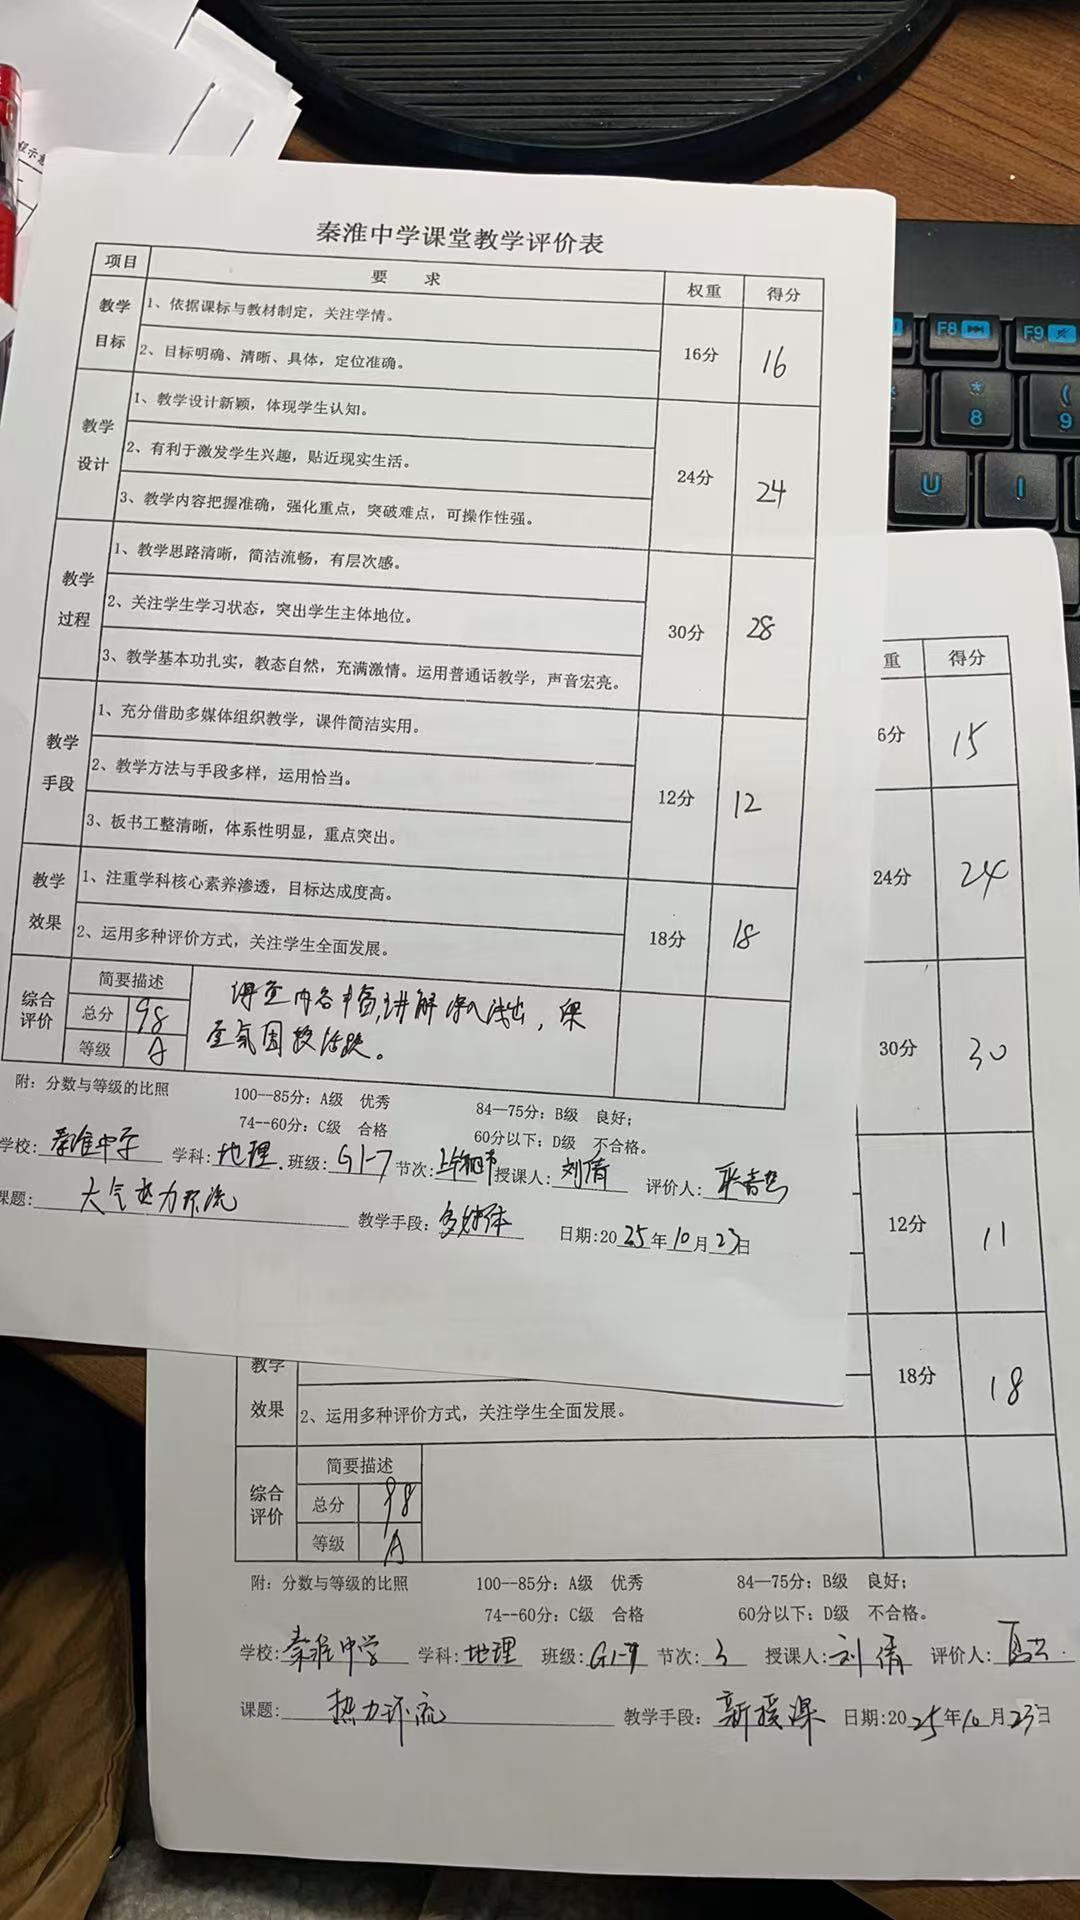 秦淮中学课堂教学评价表
项目 要 求 权重 得分
教学目标 1、依据课标与教材制定，关注学情。 16分 16
2、目标明确、清晰、具体，定位准确。
教学设计 1、教学设计新颖，体现学生认知。 24分 24
2、有利于激发学生兴趣，贴近现实生活。
3、教学内容把握准确，强化重点，突破难点，可操作性强。
教学过程 1、教学思路清晰，简洁流畅，有层次感。 30分 28
2、关注学生学习状态，突出学生主体地位。
3、教学基本功扎实，教态自然，充满激情。运用普通话教学，声音宏亮。
教学手段 1、充分借助多媒体组织教学，课件简洁实用。 12分 12
2、教学方法与手段多样，运用恰当。
3、板书工整清晰，体系性明显，重点突出。
教学效果 1、注重学科核心素养渗透，目标达成度高。 18分 18
2、运用多种评价方式，关注学生全面发展。
综合评价 简要描述 课堂内容丰富,讲解深入浅出，课
总分 98 堂氛围较活跃。
等级 A
附：分数与等级的比照 100--85分：A级 优秀 84—75分：B级 良好；
74--60分：C级 合格 60分以下：D级 不合格。
学校：秦淮中学 学科：地理 班级：G1-7 节次： 授课人：刘倩 评价人：
课题：大气热力环流 教学手段：多媒体 日期:2025年10月23日
重 得分
6分 15
24分 24
30分 30
12分 11
教学 18分 18
效果 2、运用多种评价方式，关注学生全面发展。
综合评价 简要描述
总分 98
等级 A
附：分数与等级的比照 100--85分：A级 优秀 84—75分：B级 良好；
74--60分：C级 合格 60分以下：D级 不合格。
学校：秦淮中学 学科：地理 班级： 节次：3 授课人：刘倩 评价人：
课题：热力环流 教学手段：新授课 日期:2025年10月23日
F8
F9
*
8
(
9
U
I